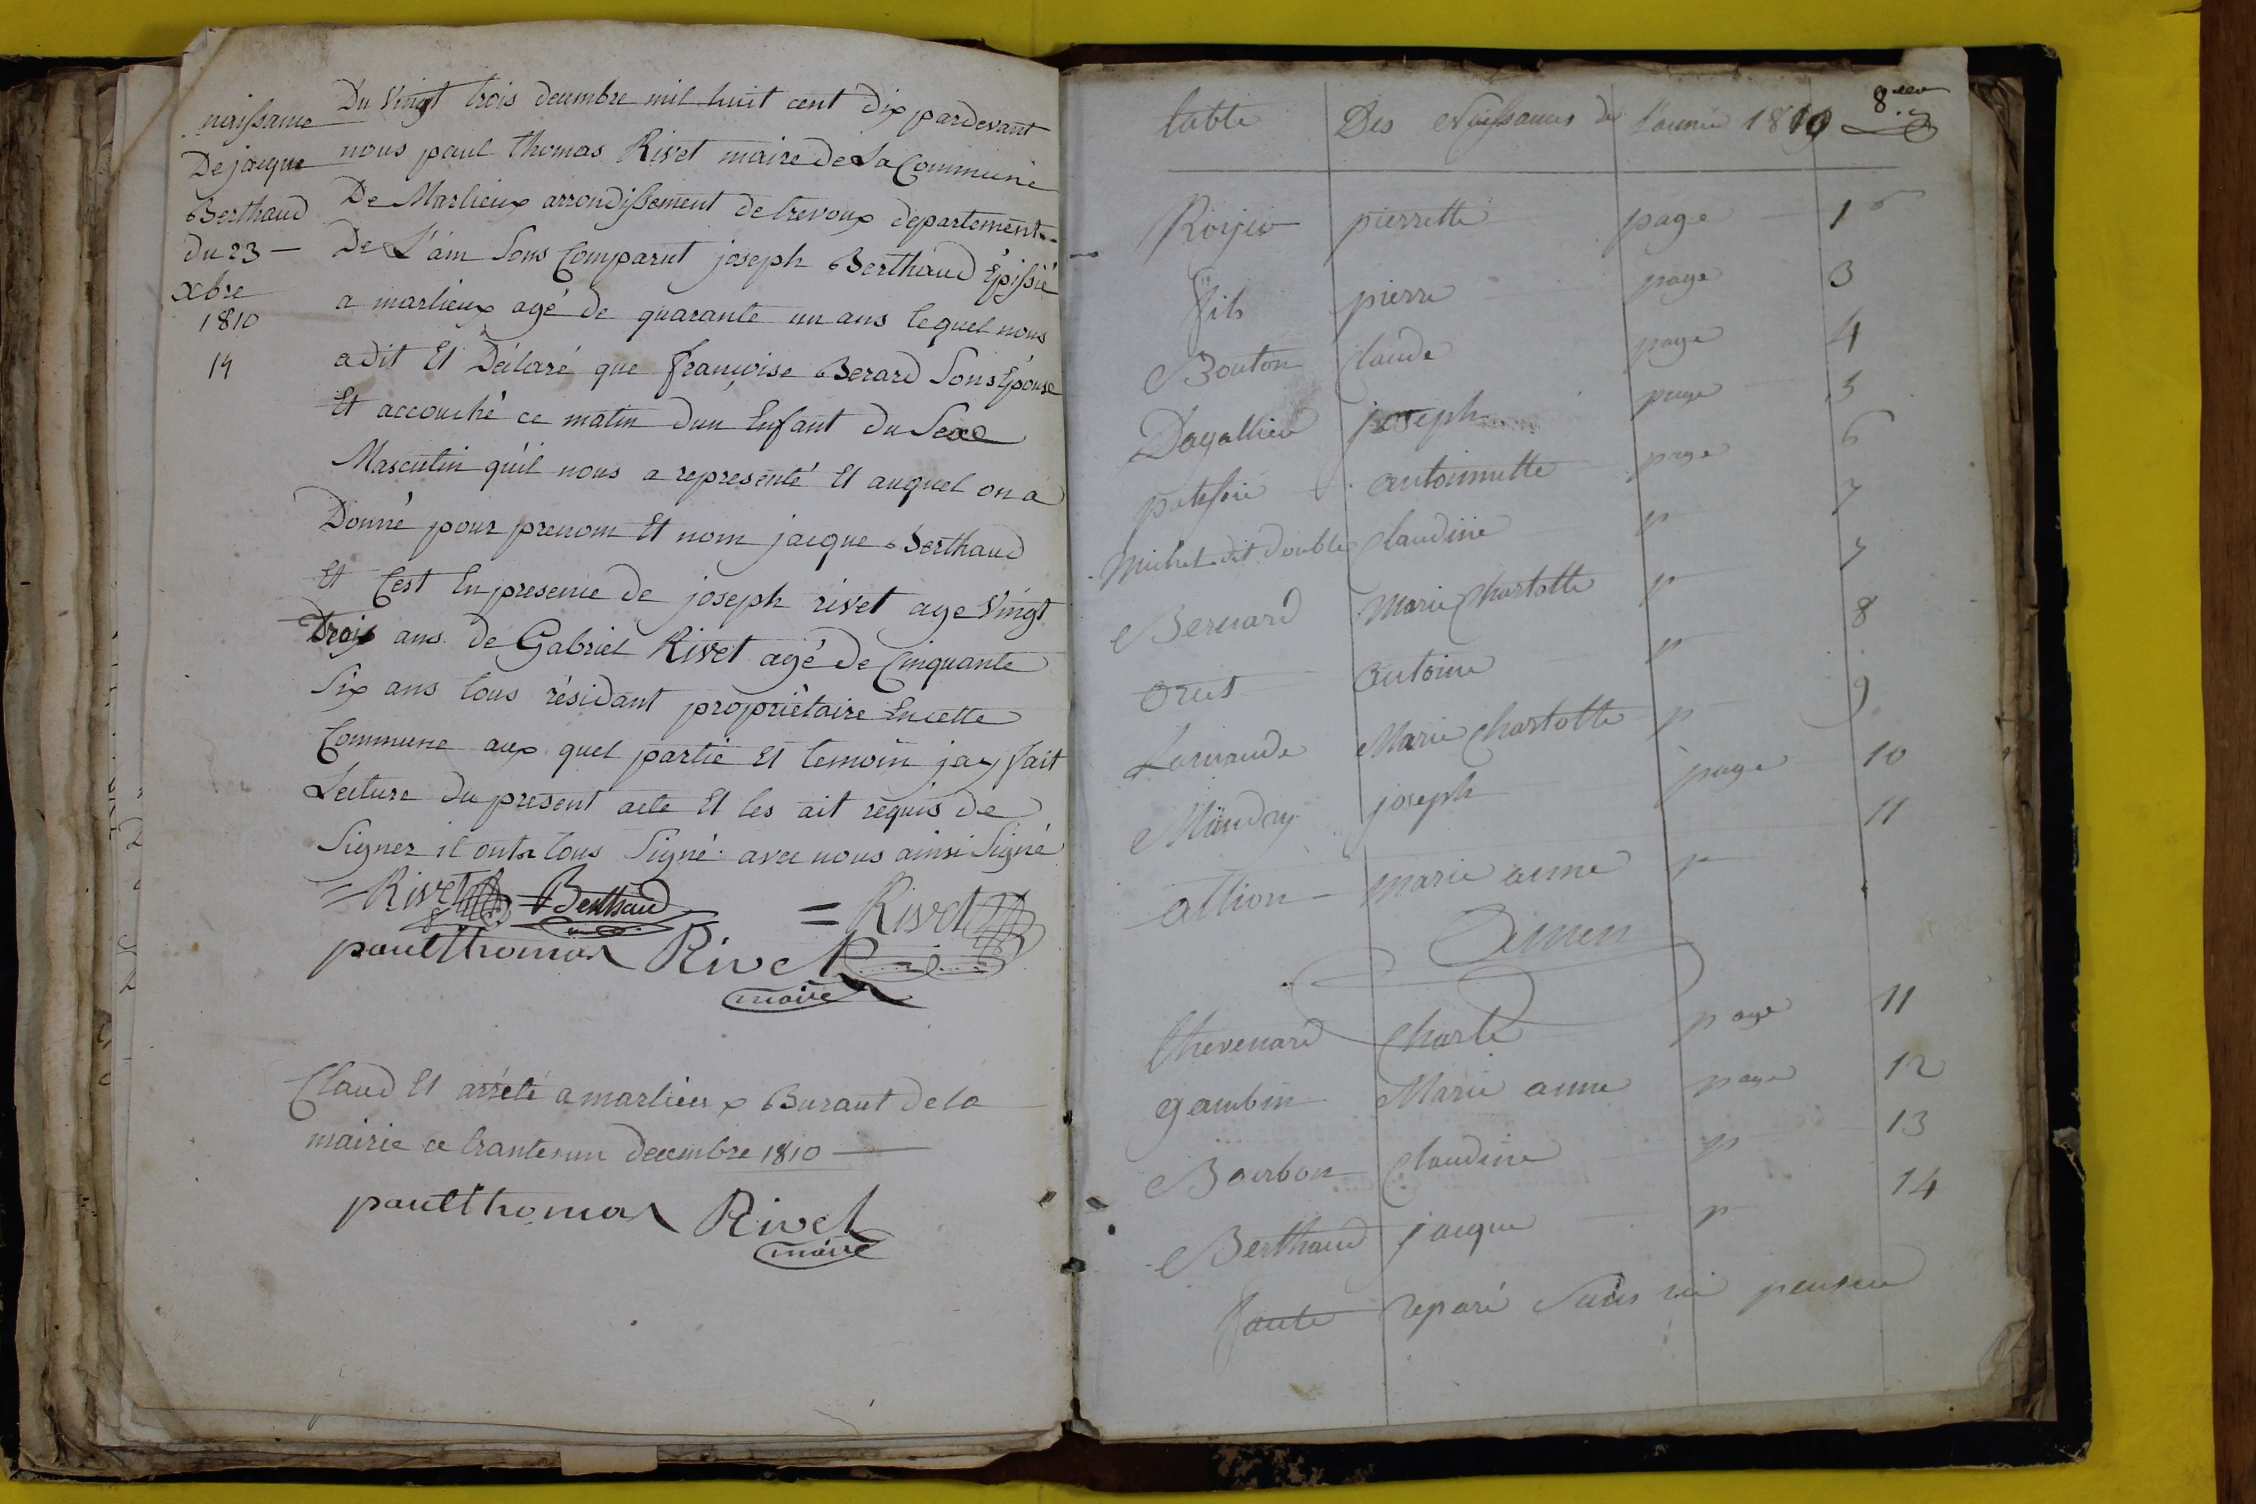 naissance
De jacque
Berthaud
du 23 —
xbre
1810
14
Du vingt trois decembre mil huit cent dix pardevant
nous paul thomas Rivet maire de La Commune
De Marlieux arrondissement de trevoux departement
De L'ain Sons Comparut joseph Berthaud Épissié
a marlieux agé de quarante un ans lequel nous
a dit Et Déclaré que françoise Berard Sons Épouse
Et accouché ce matin dun Enfant du Sexe
Masculin qu'il nous a representé Et auquel on a
Donné pour prenom Et nom jacque Berthaud
Et C'est En presence de joseph rivet age Vingt
Trois ans de Gabriel Rivet agé de Cinquante
Six ans tous résidant propriétaire En cette
Commune aux quel partie Et temoin jay fait
Lecture du present acte Et les ait requis de
Signer il ont tous Signé avec nous ainsi Signé
= Rivet Berthaud = Rivet
paul thomas Rivet
maire
Claud Et arrété a marlieux Buraut de la
mairie ce trante un decembre 1810 —
paul thomas Rivet
maire
table Des Naissances de L'année 1810 8.
pierrette page 1
fils pierre page 3
Bouton Claude page 4
Dagallier joseph page 5
antoinnette page 6
Michel dit double Claudine p 7
Bernard Marie Charlotte p 7
Antoine p 8
Marie Charlotte p 9
joseph page 10
allion marie anne p 11
Amen
thevenard Charle page 11
gambin Marie anne page 12
Bourbon Claudine p 13
Berthaud jacque p 14
faute reparé Sans